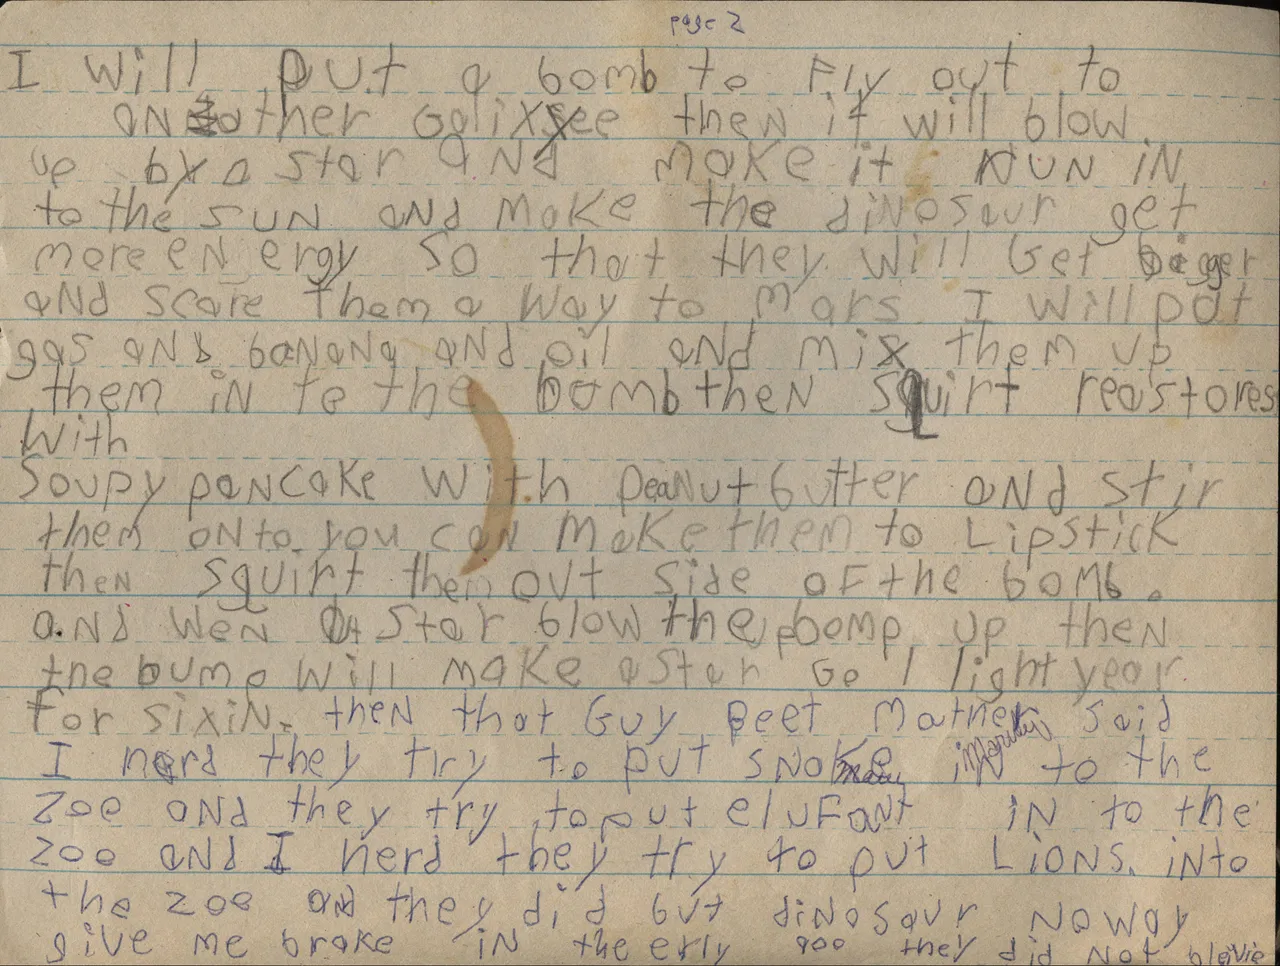 page 2
I will put a bomb to Fly out to
another Galixee then it will blow
up by a star and make it run in
to the sun and make the dinosaur get
more en ergy so that they will Get bigger
and scare them a way to mars. I will put
gas and banana and oil and mix them up
them in to the bomb then squirt reastores
with
Soupy pancake with peanut butter and stir
them onto. you can make them to Lipstick
then squirt them out side of the bomb.
and wen a star blow the bomp up then
the bump will make a star Go 1 light year
for sixin. then that Guy Beet Mather said
I herd they try to put snake in to the
zoe and they try to put elufant in to the
zoo and I herd they try to put Lions. into
the zoe and they did but dinosaur no way
give me brake in the erly they did not bleivie